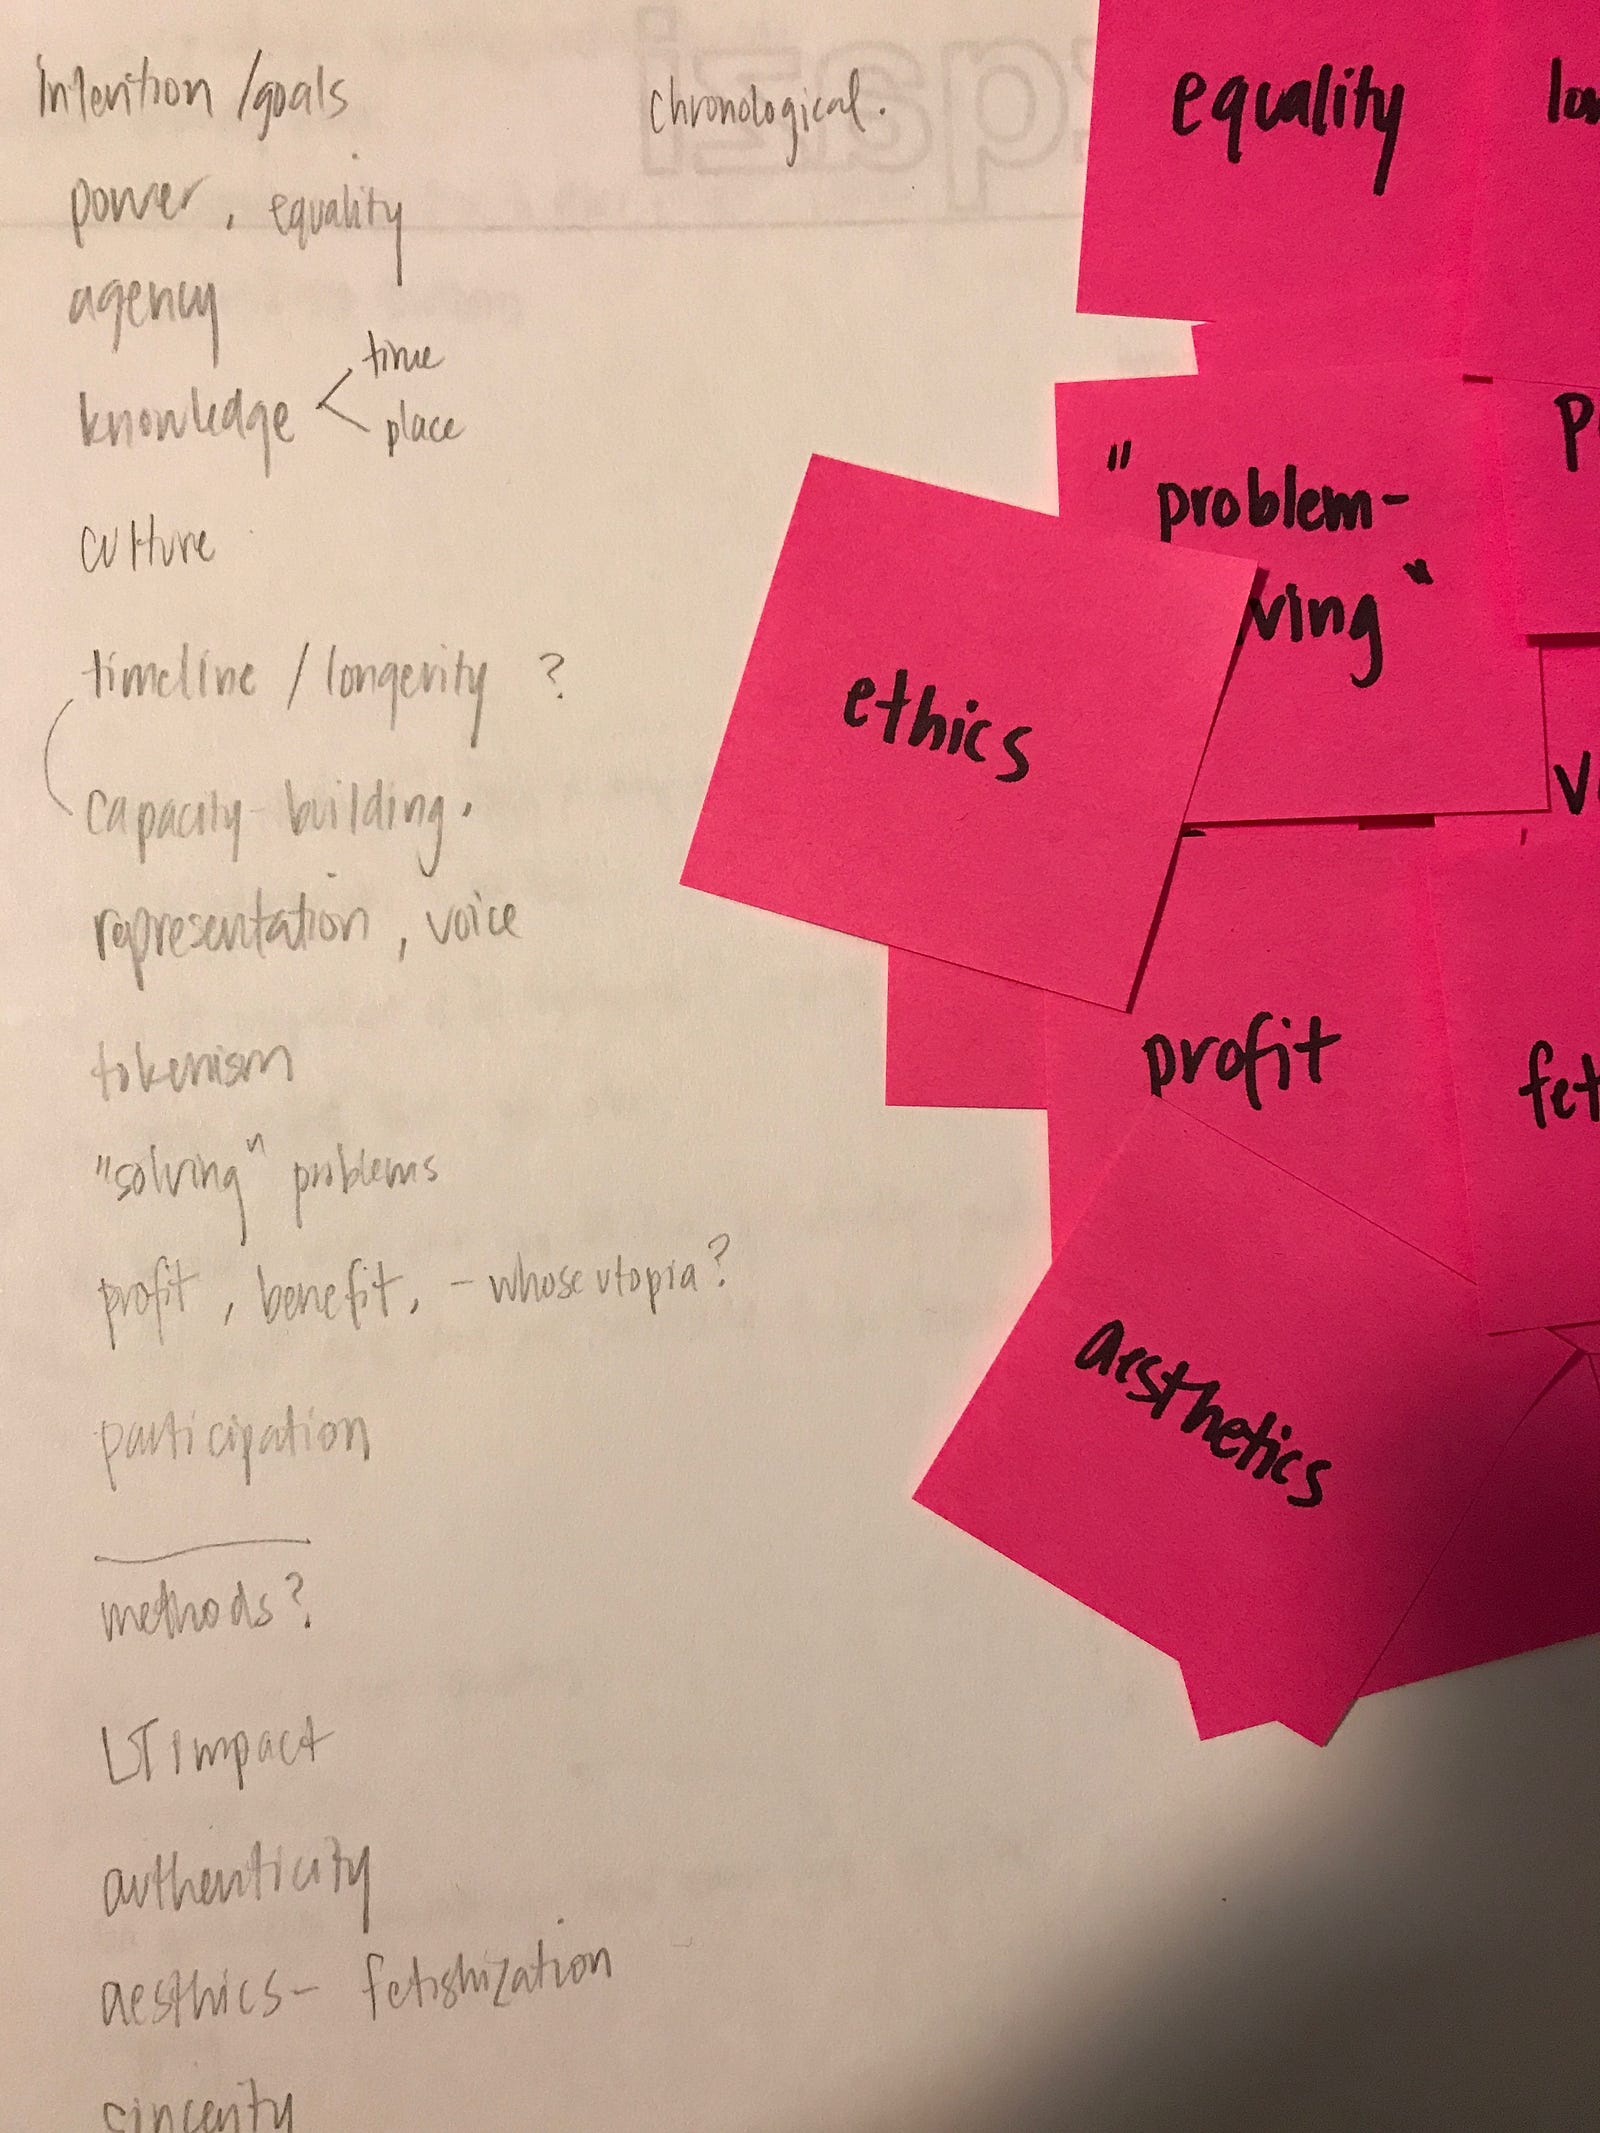 Intention /goals
chronological.
power, equality
agency
knowledge < time
place
culture
timeline / longevity ?
capacity-building.
representation, voice
tokenism
"solving" problems
profit, benefit, - whose utopia?
participation
methods?
LT impact
authenticity
aesthics- fetishization
sincerity
equality
"problem-
ving"
ethics
profit
fet
aesthetics